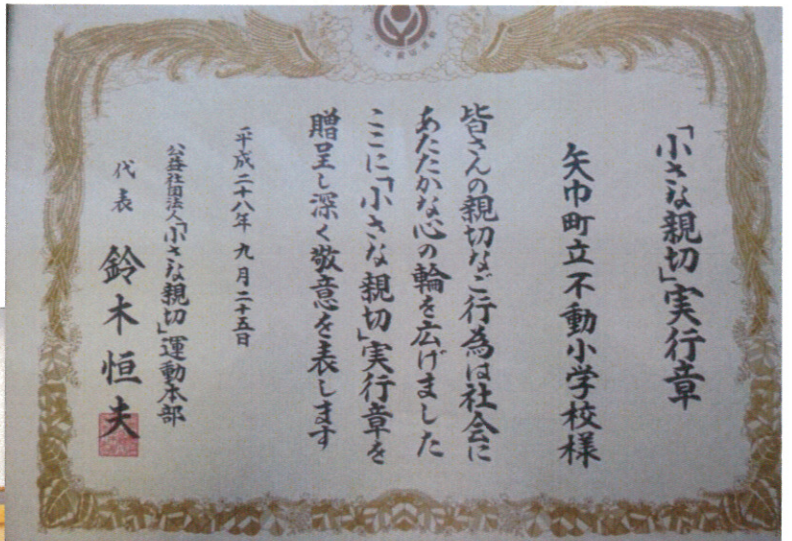 「小さな親切」実行章
矢巾町立不動小学校様
皆さんの親切なご行為は社会に
あたたかな心の輪を広げました
ここに「小さな親切」実行章を
贈呈し深く敬意を表します
平成二十八年 九月二十五日
公益社団法人「小さな親切」運動本部
代表 鈴木恒夫